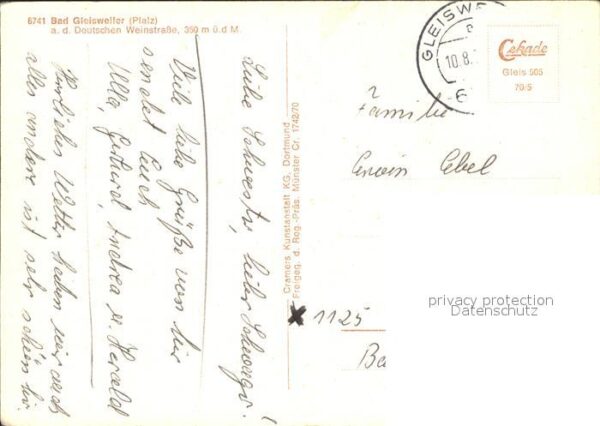 6741 Bad Gleisweiler (Pfalz)
a. d. Deutschen Weinstraße, 350 m ü.d M.
Liebe Schwester, lieber Schwager!
Viele liebe Grüße von hier
sendet Euch
Ulla, Gerhard, Andrea u. Harald
Herrliches Wetter haben wir auch
alles andere ist sehr schön hier.
Cramers Kunstanstalt KG, Dortmund
Freigeg. d. Reg.-Präs. Münster Cr. 1742/70
GLEISW
10.8.
6
Cekade
Gleis 505
70/5
Familie
Erwin Ebel
1125
Be
privacy protection
Datenschutz